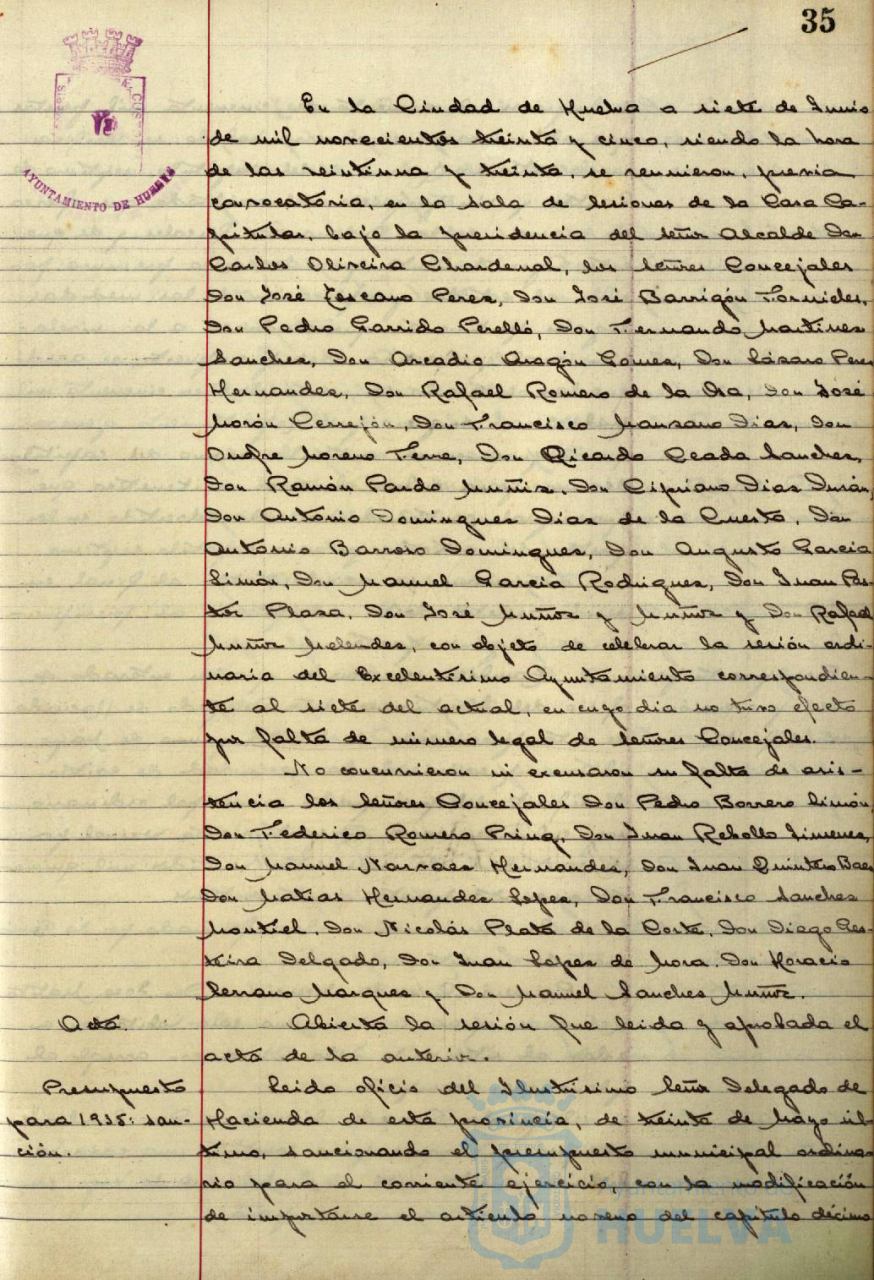 35
AYUNTAMIENTO DE HUELVA
En la Ciudad de Huelva a siete de Junio
de mil novecientos treinta y cinco, siendo la hora
de las veintiuna y treinta, se reunieron, previa
convocatoria, en la Sala de Sesiones de la Casa Ca-
pitular, bajo la presidencia del señor Alcalde Don
Carlos Oliveira Chardenal, los señores Concejales
Don José Toscano Perez, Don José Barrigón Fornieles,
Don Pedro Garrido Perelló, Don Fernando Martinez
Sanchez, Don Arcadio Aragón Gomez, Don Lázaro Perez
Hernandez, Don Rafael Romero de la Osa, Don José
Morón Cerrejón, Don Francisco Manzano Dias, Don
Onofre Moreno Ferre, Don Ricardo Ceada Sanchez,
Don Ramón Pardo Muñiz, Don Cipriano Dias Durán,
Don Antonio Domingues Dias de la Cuesta, Don
Antonio Barroso Domingues, Don Augusto Garcia
Simón, Don Manuel Garcia Rodrigues, Don Juan Pas-
tor Plaza, Don José Muñoz y Muñoz y Don Rafael
Muñoz Melendez, con objeto de celebrar la sesión ordi-
naria del Excelentísimo Ayuntamiento correspondien-
te al siete del actual, en cuyo dia no tuvo efecto
por falta de número legal de señores Concejales.
No concurrieron ni excusaron su falta de asis-
tencia los señores Concejales Don Pedro Borrero Limón,
Don Federico Romero Pring, Don Juan Rebollo Jimenez,
Don Manuel Narvaez Hernandez, Don Juan Quintero Baez
Don Matias Hernandez Lopez, Don Francisco Sanchez
Montiel, Don Nicolás Plata de la Corte, Don Diego
Delgado, Don Juan Lopez de Mora, Don Horacio
Serrano Marques y Don Manuel Sanchez Muñoz.
Acta.
Abierta la sesión fue leida y aprobada el
acta de la anterior.
Presupuesto
para 1935: san-
ción.
Leido oficio del Ilustrísimo Señor Delegado de
Hacienda de esta provincia, de treinta de Mayo úl-
timo, sancionando el presupuesto municipal ordina-
rio para el corriente ejercicio, con la modificación
de importarse el artículo noveno del capitulo décimo
Ayuntamiento de
HUELVA